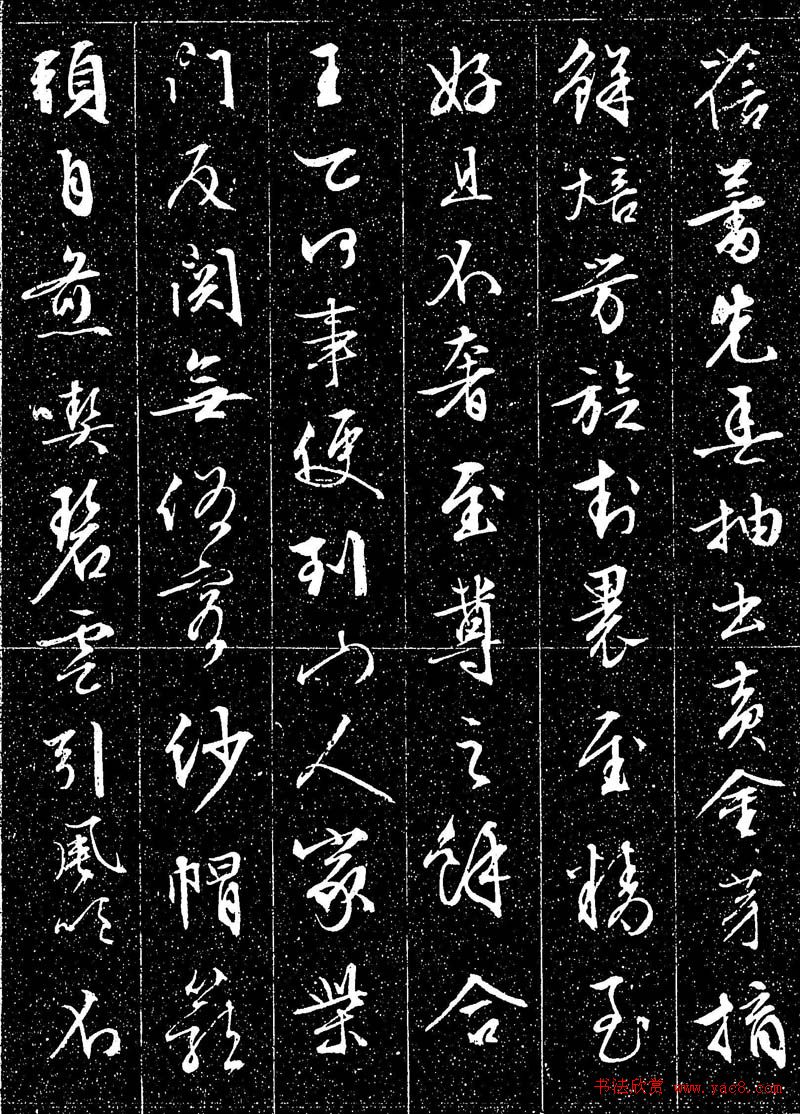 蓓蕾先春抽出黃金芽摘
鮮焙芳旋封裹至精至
好且不奢至尊之餘合
王公何事便到山人家柴
門反関無俗客紗帽籠
頭自煎喫碧雲引風吹不
书法欣赏 www.yac8.com